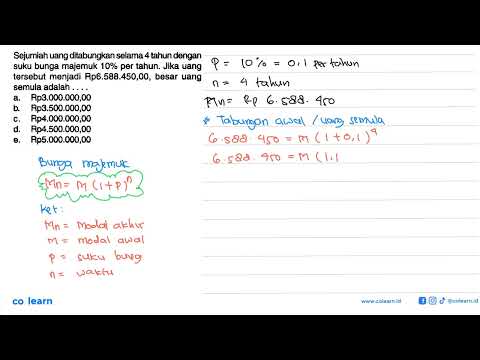 Sejumlah uang ditabungkan selama 4 tahun dengan
suku bunga majemuk 10% per tahun. Jika uang
tersebut menjadi Rp6.588.450,00, besar uang
semula adalah . . . .
a. Rp3.000.000,00
b. Rp3.500.000,00
c. Rp4.000.000,00
d. Rp4.500.000,00
e. Rp5.000.000,00
Bunga majemuk
Mn = M (1+P)^n
ket:
Mn = Modal akhir
M = modal awal
P = suku bung
n = waktu
P = 10% = 0,1 per tahun
n = 4 tahun
Mn = Rp 6.588.450
* Tabungan awal / uang semula
6.588.450 = M (1+0,1)^4
6.588.450 = M (1,1
co learn
www.colearn.id
@colearn.id